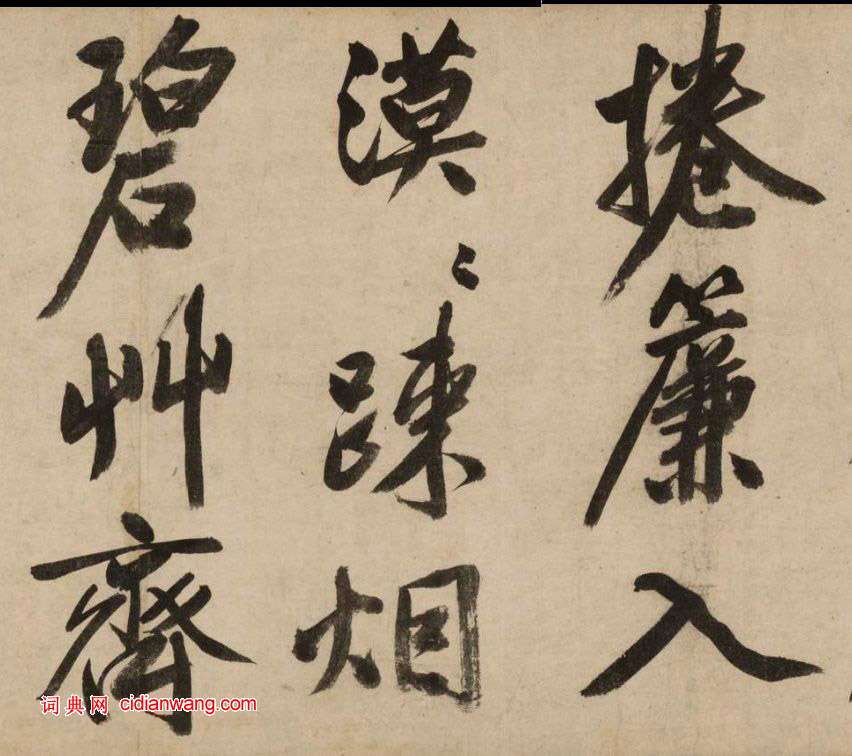 捲簾入
漠〻踈烟
碧艸齊
词典网 cidianwang.com